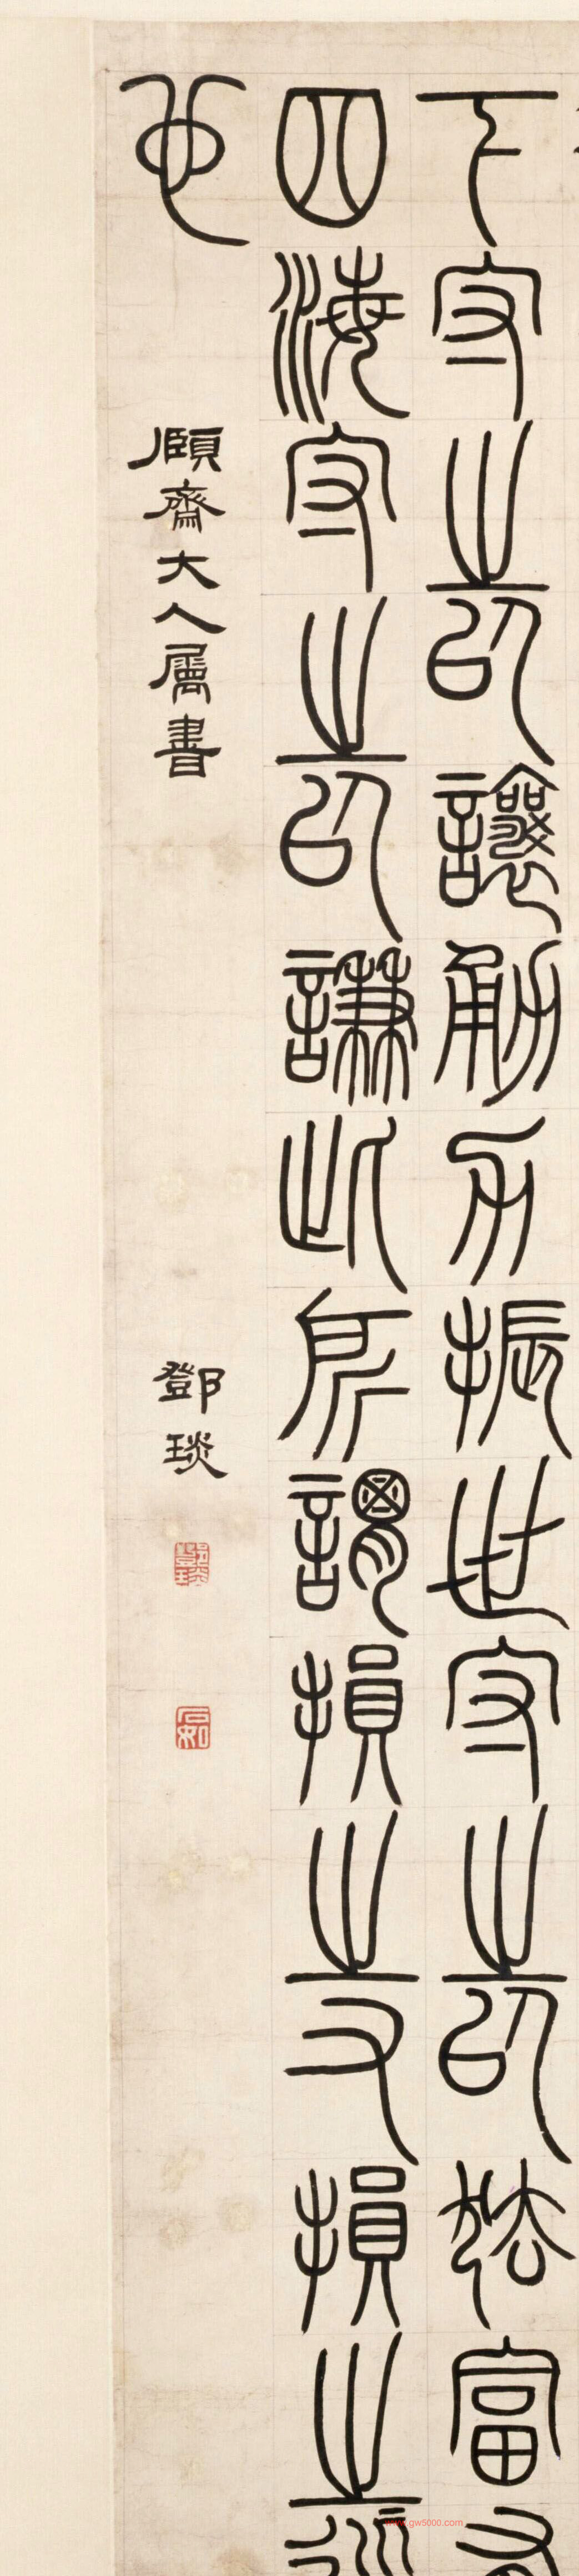 下守之以讓勇力振世守之以怯富有
四海守之以謙此所謂損之又損之道
也
頤齋大人屬書
鄧琰
鄧琰
石如
www.gw5000.com